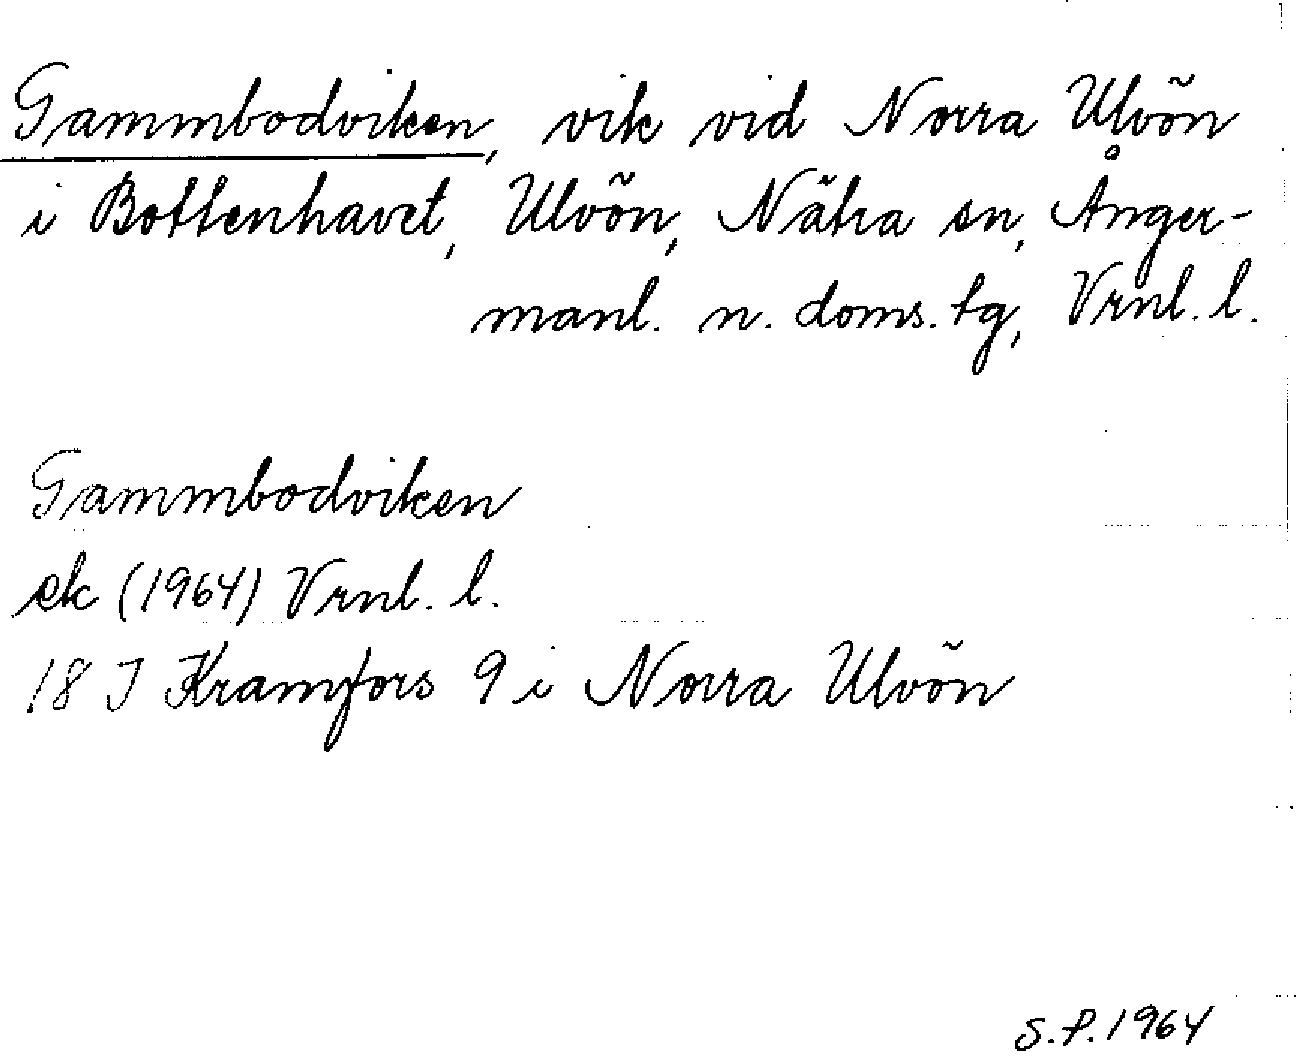 Gammbodviken, vik vid Norra Ulvön
i Bottenhavet, Ulvön, Nätra sn, Ånger-
manl. n. doms. tg, Vrnl. l.
Gammbodviken
ek (1964) Vrnl. l.
18 J Kramfors 9 i Norra Ulvön
S.P. 1964